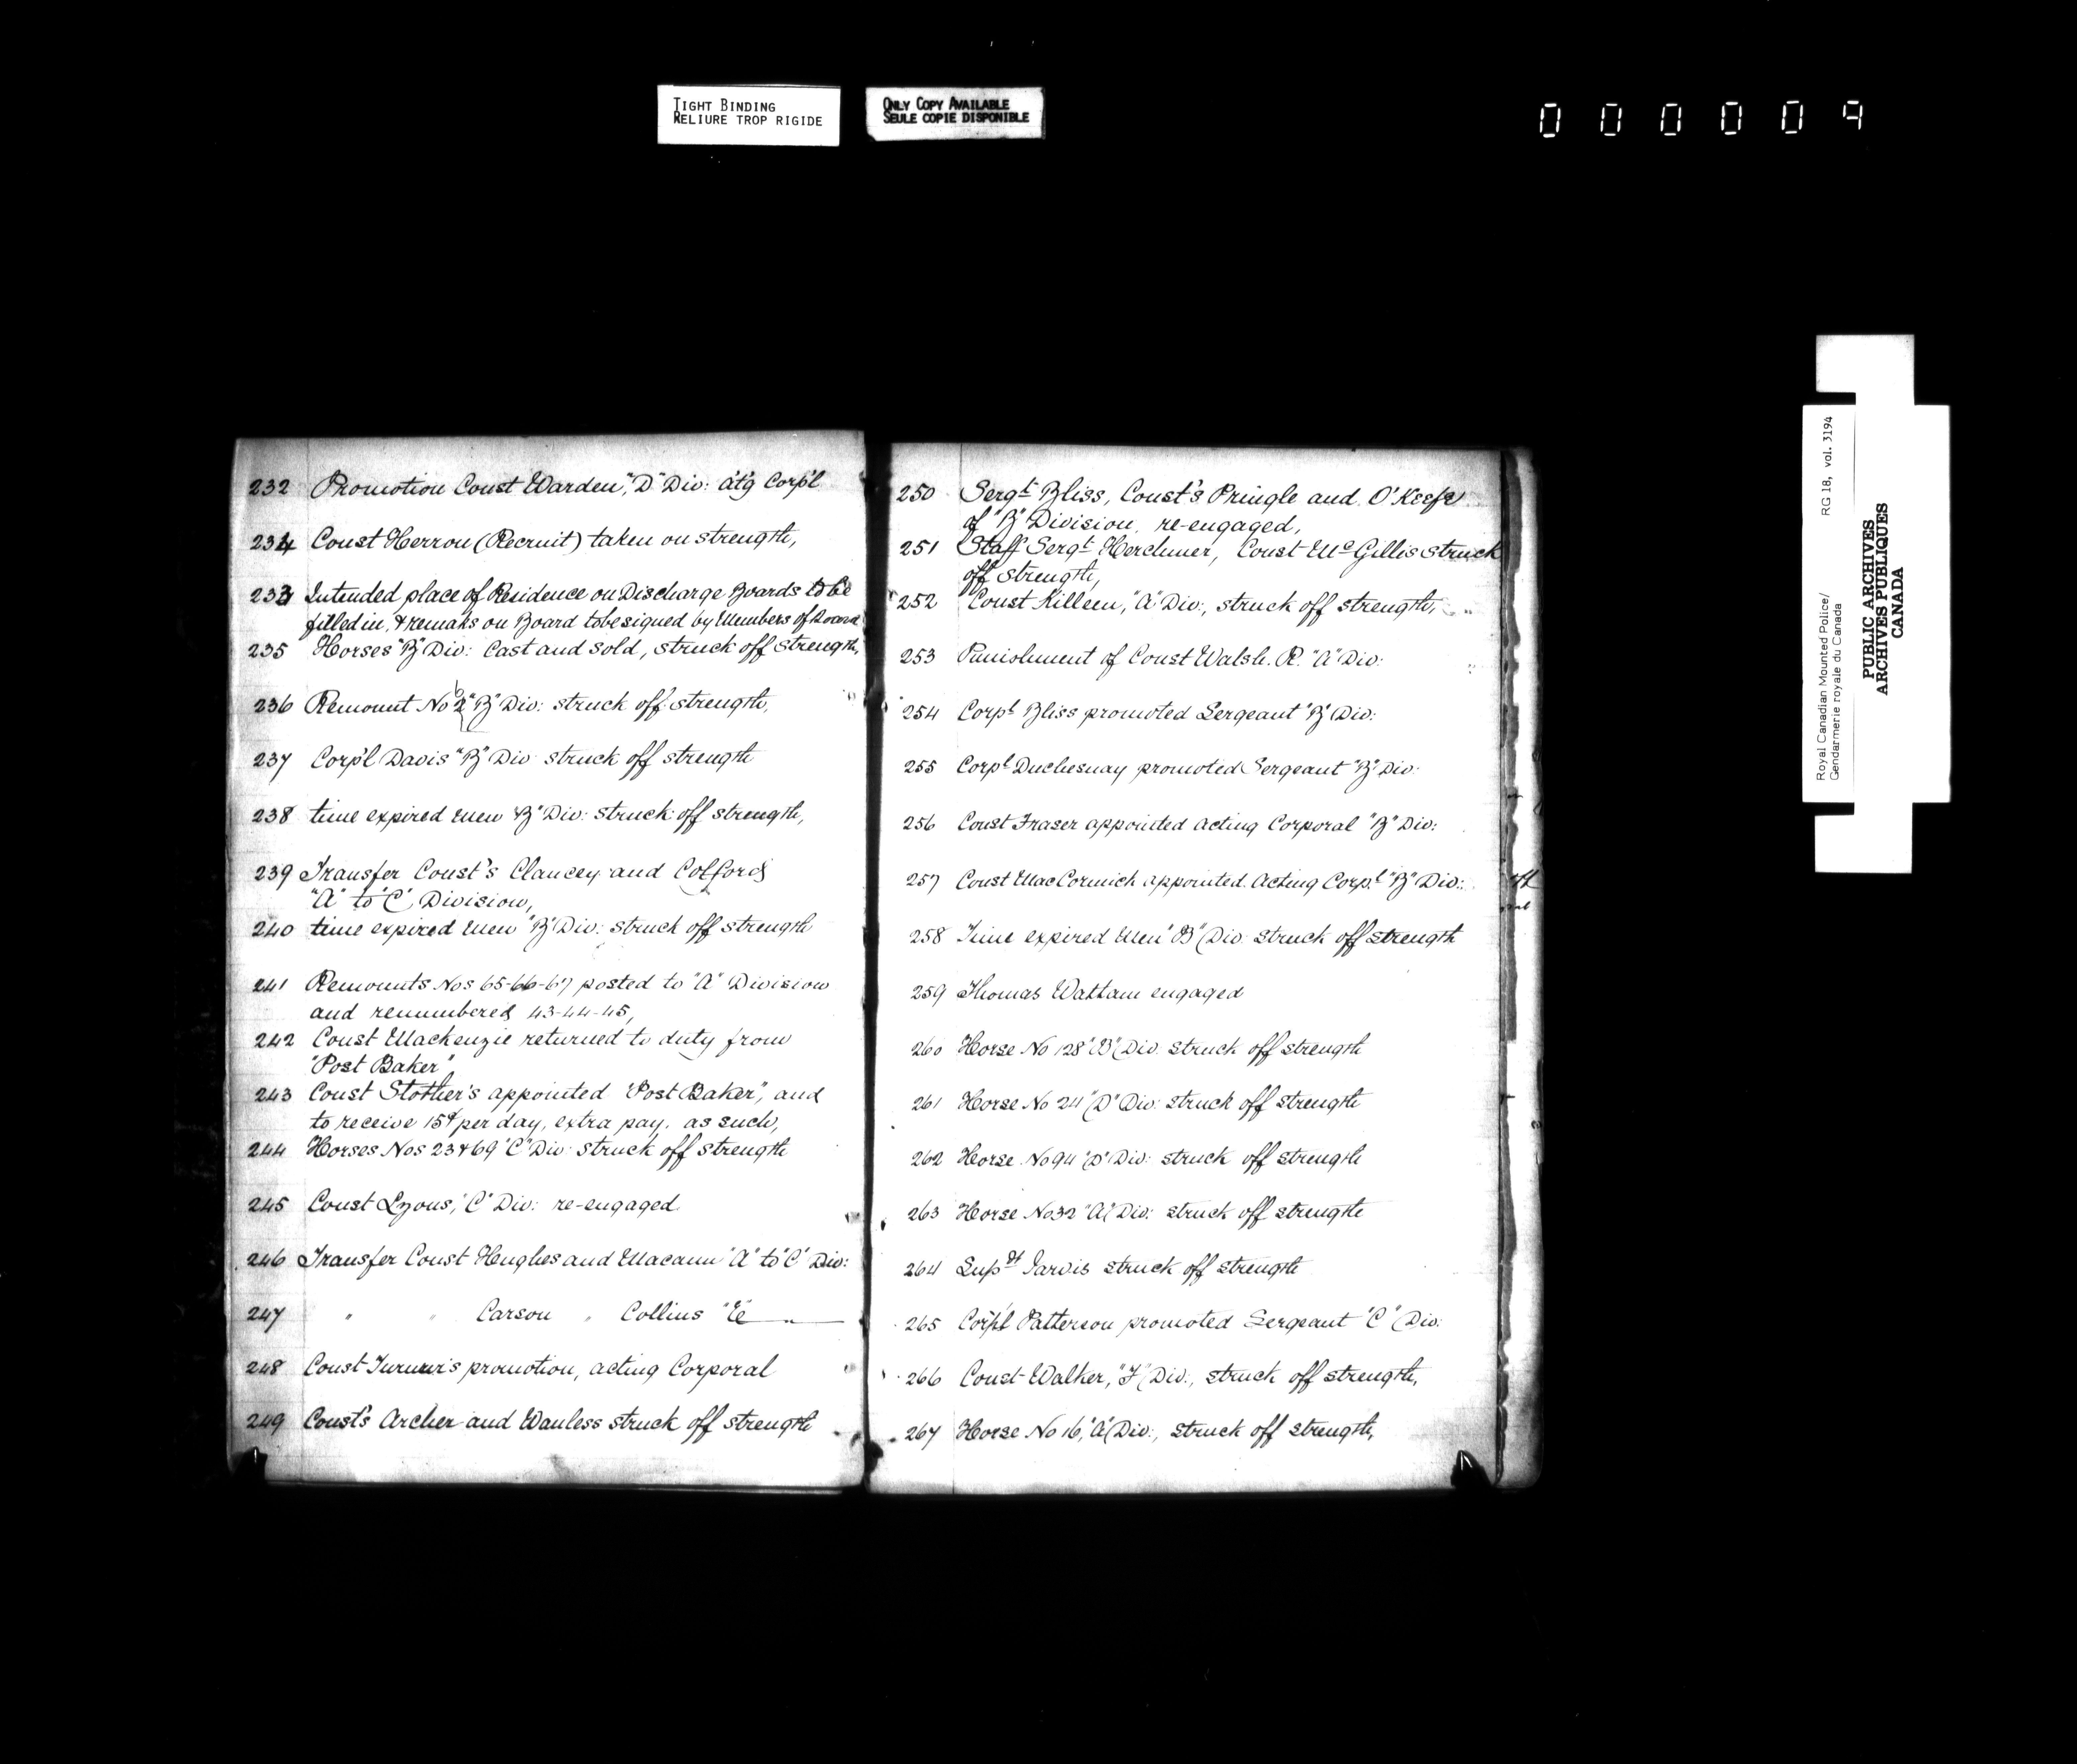 TIGHT BINDING
RELIURE TROP RIGIDE
ONLY COPY AVAILABLE
SEULE COPIE DISPONIBLE
000009
232 Promotion Const Warden, "D" Div: a't'g Corp'l
234 Const Herron (Recruit) taken on strength,
233 Intended place of Residence on Discharge Boards to be
filled in, & remaks on Board to be signed by Members of Board
235 Horses "B" Div: Cast and sold, struck off strength,
236 Remount No "B" Div: struck off strength,
237 Corp'l Davis "B" Div: struck off strength
238 time expired men "B" Div: struck off strength,
239 Transfer Const's Clancey and Colford
"A" to "C" Division,
240 time expired men "B" Div: struck off strength
241 Remounts Nos 65-66-67 posted to "A" Division
and renumbered 43-44-45,
242 Const Mackenzie returned to duty from
"Post Baker"
243 Const Stother's appointed "Post Baker", and
to receive 15¢ per day, extra pay, as such,
244 Horses Nos 23 & 69 "C" Div: struck off strength
245 Const Lyons, "C" Div: re-engaged
246 Transfer Const Hughes and Macann "A" to "C" Div:
247 " " Carson " Collins "E" — " —
248 Const Turner's promotion, acting Corporal
249 Const's Archer and Wanless struck off strength
250 Sergt Bliss, Const's Pringle and O'Keefe
of "B" Division, re-engaged,
251 Staff Sergt Herchmer, Const McGillis struck
off strength,
252 Const Killeen, "A" Div:, struck off strength,
253 Punishment of Const Walsh. R. "A" Div:
254 Corpl Bliss promoted Sergeant "B" Div:
255 Corpl Duchesnay promoted Sergeant "B" Div:
256 Const Fraser appointed acting Corporal "B" Div:
257 Const MacCormick appointed Acting Corp.l "B" Div:
258 Time expired Men "B" Div: struck off strength
259 Thomas Wattam engaged
260 Horse No 128 "B" Div: struck off strength
261 Horse No 24 "D" Div: struck off strength
262 Horse No 94 "D" Div: struck off strength
263 Horse No 32 "A" Div: struck off strength
264 Supdt Jarvis struck off strength
265 Corp'l Patterson promoted Sergeant "C" Div:
266 Const Walker, "F" Div:, struck off strength,
267 Horse No 16, "A" Div:, struck off strength,
Royal Canadian Mounted Police/
Gendarmerie royale du Canada
RG 18, vol. 3194
PUBLIC ARCHIVES
ARCHIVES PUBLIQUES
CANADA